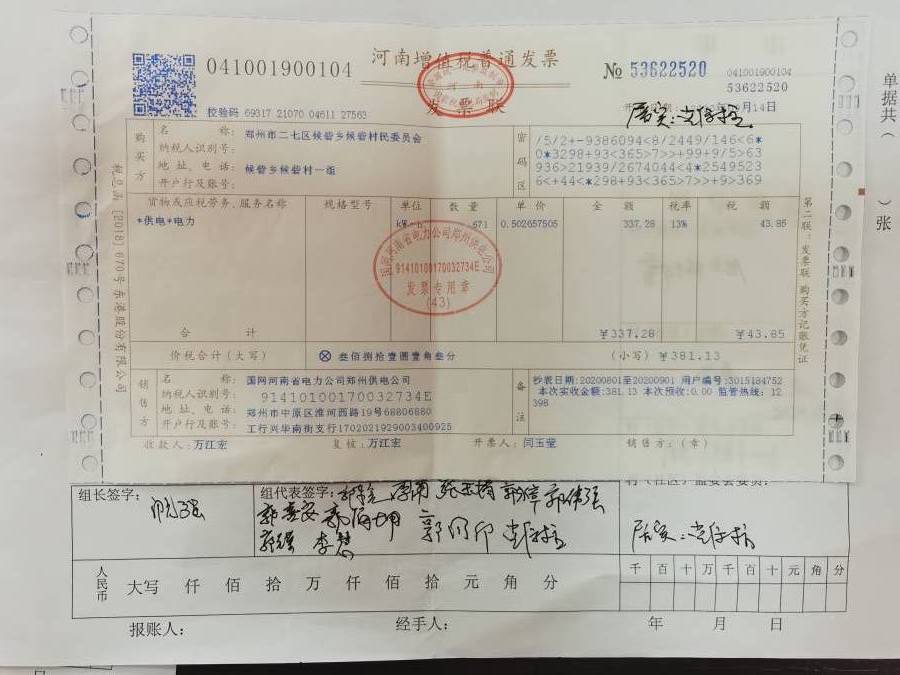 041001900104
河南增值税普通发票
№ 53622520
041001900104
53622520
校验码 69317 21070 04611 27563
发票联
购买方
名称: 郑州市二七区候砦乡候砦村民委员会
纳税人识别号:
地址、电话: 候砦村一组
开户行及账号:
密码区
/5/2+-9386094<8/2449/146<6*
0*3298+93<365>7>>+99+9/5>63
936>21939/2674044<4*2549523
6<+44<*298+93<365>7>>+9>369
货物或应税劳务、服务名称 规格型号 单位 数量 单价 金额 税率 税额
*供电*电力 671 0.502657505 337.28 13% 43.85
国网河南省电力公司郑州供电公司
91410100170032734E
发票专用章
(43)
合计 ¥337.28 ¥43.85
价税合计(大写) ⊗ 叁佰捌拾壹圆壹角叁分 (小写) ¥381.13
销售方
名称: 国网河南省电力公司郑州供电公司
纳税人识别号: 91410100170032734E
地址、电话: 郑州市中原区淮河西路19号68806880
开户行及账号: 工行兴华南街支行1702021929003400925
备注
抄表日期:20200801至20200901 用户编号:3015184752
本次实收金额:381.13 本次预收:0.00 监管热线:12
398
收款人:万江宏 复核:万江宏 开票人:闫玉莹 销售方:(章)
税总函[2018]670号东港股份有限公司
第二联:发票联 购买方记账凭证
单据共( )张
组长签字:
组代表签字:
李慧
人民币 大写 仟 佰 拾 万 仟 佰 拾 元 角 分
千 百 十 万 千 百 十 元 角 分
报账人: 经手人: 年 月 日